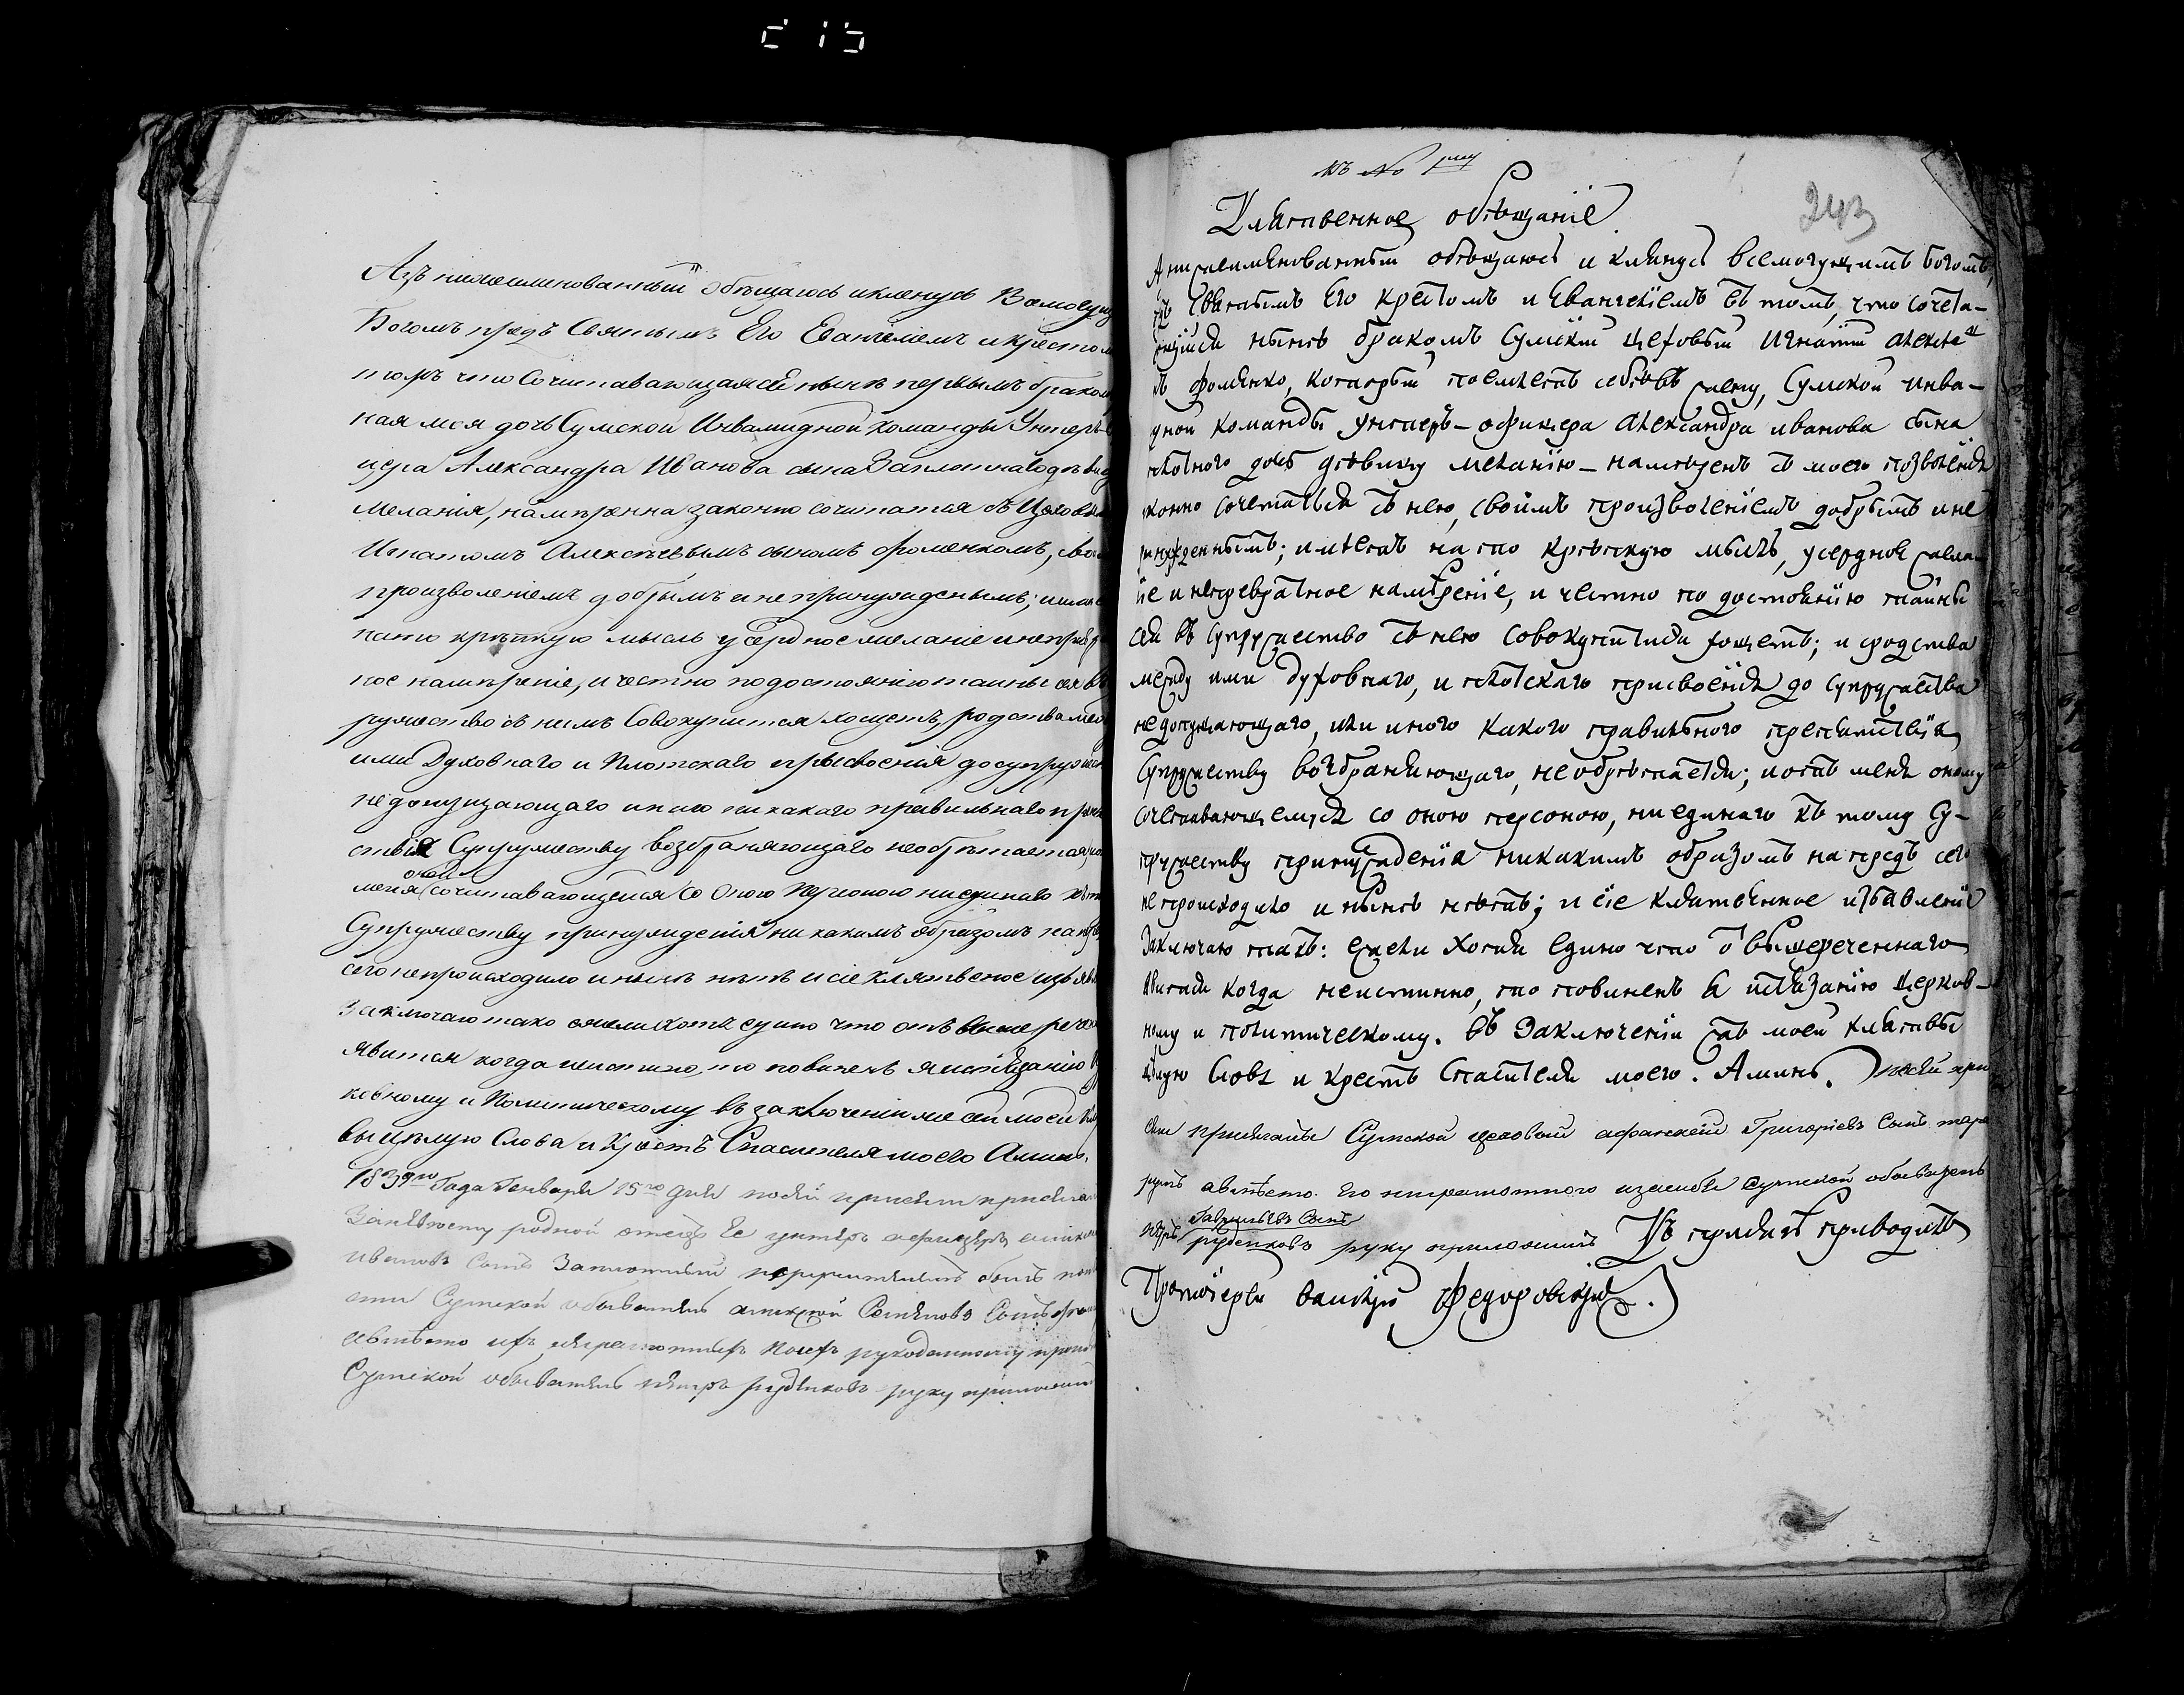 Азъ нижеименованный обещаюсь икленусь Всемогущ
Богомъ предъ Святымъ Его Евангелиемъ икресто
томъ что Сочитавающаясе ныне первымъ брако
ная моя дочь Сумской Инвалидной Команды Унтеръ
цера Александра Иванова сына
Мелания, намѣренна законно сочитатся съ Цехов
Игнатомъ Алексѣевымъ сыномъ Фоменкомъ, сво
произволениемъ добрымъ инепринужденымъ, имѣе
нато крѣпкую мысль усердное желание инепревр
ное намѣрение, и честно подостоянию таины сея въ
ружество съ нимъ Совокупится хощетъ, родства меж
ими Духовнаго и Плотскаго присвоения досупружес
недопущающаго инаго никакаго правильнаго препя
ствия Супружеству возбраняющаго необрѣтается,
оной
меня сочитавающейся со Оною персоною ниединаго къ
Супружеству принуждения никакимъ образомъ на
сего непроисходило иныне нѣтъ исие клятвеное изъяв
Заключаю тако ежели хотя едино что отъ выше рече
явится когда неистино, то повиненъ я истязанию
ковному и Политическому въ заключении же сей моей
вы цѣлую Слова и Крестъ Спасителя моего Аминь.
1839го Года Генваря 15го дня посей присяги присяга
родной отецъ Ее унтеръ афицеръ
ивановъ Сынъ
Сумской обыватель алексѣй Семеновъ Сынъ
авмѣсто ихъ неграмотныхъ поихъ рукоданному
Сумской обыватель петръ руденковъ руку приложилъ
къ №
243
Клятвенное обѣщание
Я нижеименованный обѣщаюсь и клянусь всемогущимъ богомъ,
Святымъ Его крестомъ и Евангелиемъ въ томъ, что сочета-
ющийся нынѣ бракомъ Сумский цеховый Игнатий Алексѣ
въ Фоменко, который поемлетъ себѣ въ жену, Сумской инва-
дной команды унтеръ-офицера Александра иванова сына
дочь дѣвицу Меланию – намѣренъ съ моего позволения
конно сочетаться съ нею, своимъ произволениемъ добрымъ и не
ринужденнымъ; имѣетъ на то крѣпкую мысль, усердное жела-
ие и непревратное намѣрение, и честно по достоянию тайны
сея въ супружество съ нею совокупиться хощетъ; и сродства
между ими духовнаго, и плотскаго присвоения до супружества
недопущающаго, или иного какого правильного препятствия
Супружеству возбраняющаго, необрѣтается; иотъ меня оному
сочетавающемуся со оною персоною, ниединаго къ тому Су-
пружеству принуждения никакимъ образомъ напредъ сего
непроисходило и нынѣ нѣтъ; и сие клятвенное изъявление
Заключаю такъ: Ежели хотя едино что отъ вышереченнаго
явится когда неистинно, то повиненъ я истязанию церков-
ному и политическому. Въ Заключении же моей клятвы
цѣлую Слова и крестъ Спасителя моего. Аминь. посей при
сяги присягалъ Сумской цеховый афанасий Григориевъ Сынъ
авмѣсто Его неграмотного Сумской обыватель
Гавриилевъ Сынъ
петръ руденковъ руку приложилъ Къ присягѣ приводилъ
Протоиерей Василий Федоровский.